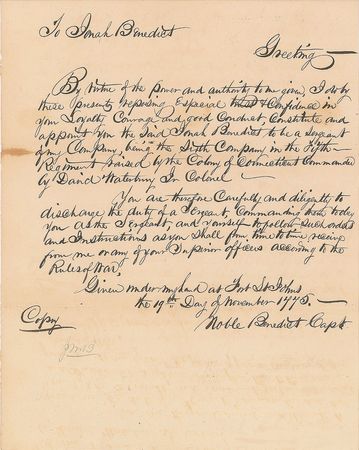 To Jonah Benedict
Greeting
By virtue of the power and authority to me given, I do by
these presents reposing Especial trust & Confidence in
your Loyalty Courage and good Conduct, Constitute and
appoint you the Said Jonah Benedict to be a sergeant
of my Company, being the Sixth Company in the Fifth
Regiment raised by the Colony of Connecticut Commanded
by David Waterbury Jr Colonel
You are therefore Carefully and diligently to
discharge the duty of a Sergeant Commanding to obey
you as the Sergeant, and yourself to follow such orders
and Instructions as you Shall from time to time receive
from me or any of your Superior officers according to the
Rules of War.
Given under my hand at Fort St Johns
the 19th Day of November 1775.
Noble Benedict Capt
Copy